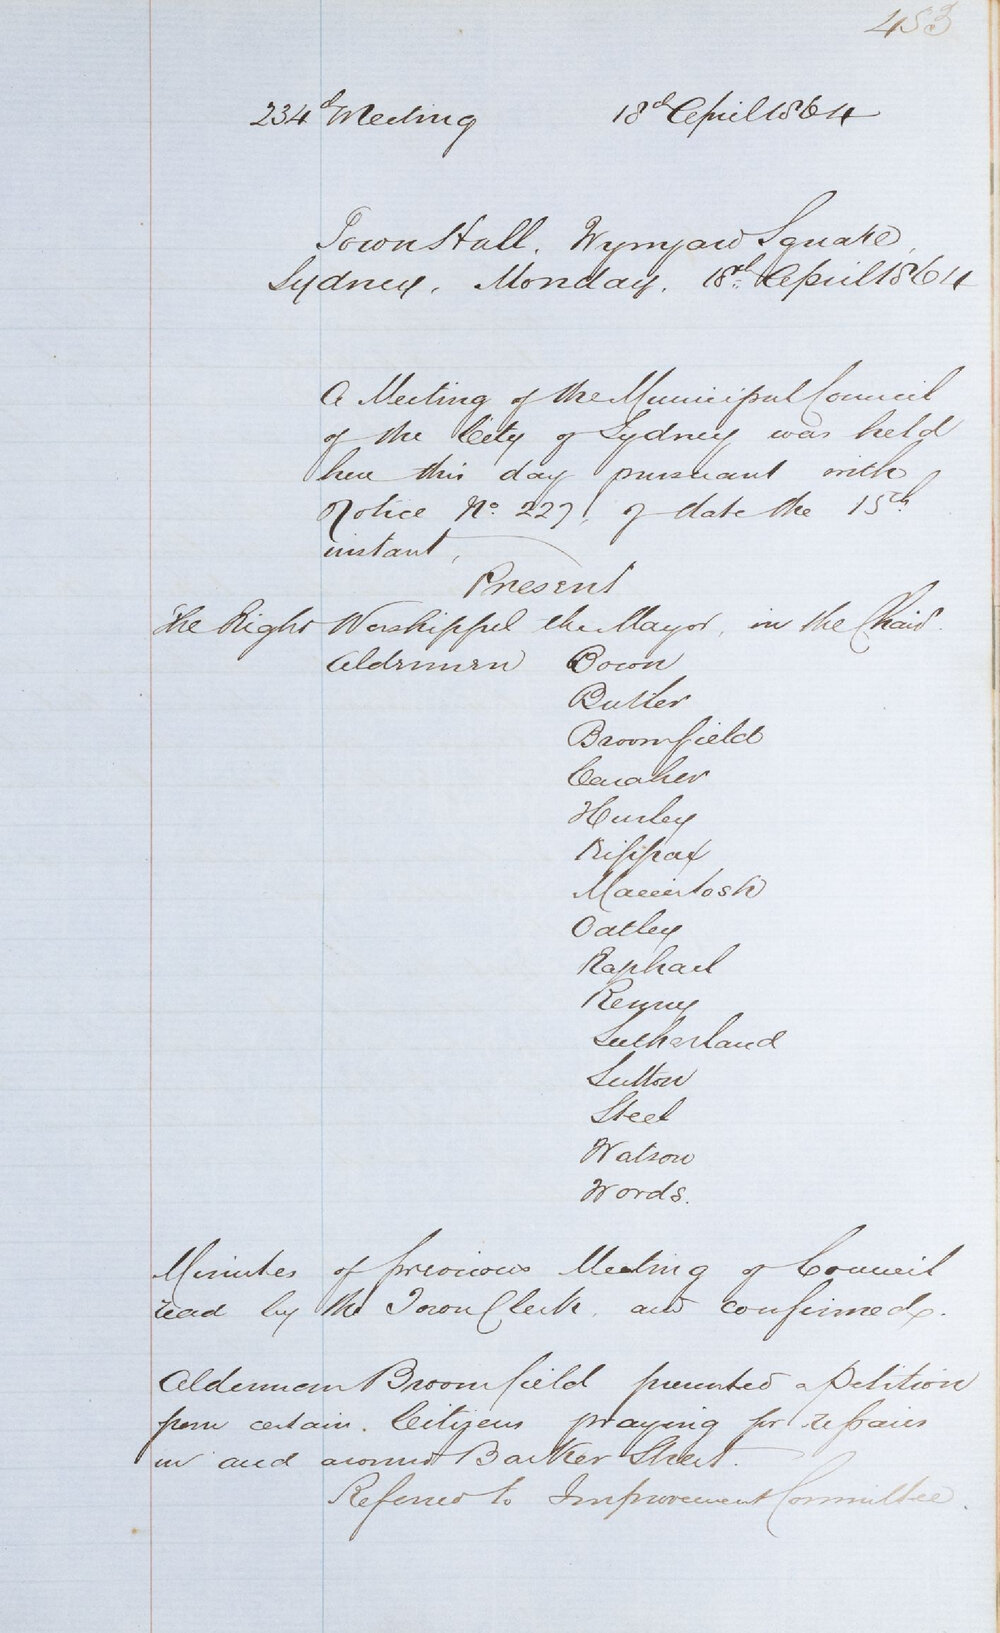 453
234th Meeting 18th April 1864
Town Hall. Wynyard Square,
Sydney, Monday, 18th April 1864
A Meeting of the Municipal Council
of the City of Sydney was held
here this day pursuant with
Notice No. 227, of date the 15th
instant,
Present
The Right Worshipful the Mayor, in the Chair.
Aldermen Bown
Butler
Broomfield
Caraher
Hurley
Kippax
Macintosh
Oatley
Raphael
Renny
Sutherland
Sutton
Steel
Watson
Woods.
Minutes of previous Meeting of Council
read by the Town Clerk, and confirmed.
Alderman Broomfield presented a Petition
from certain Citizens praying for repairs
in and around Barker Street.
Referred to Improvement Committee.